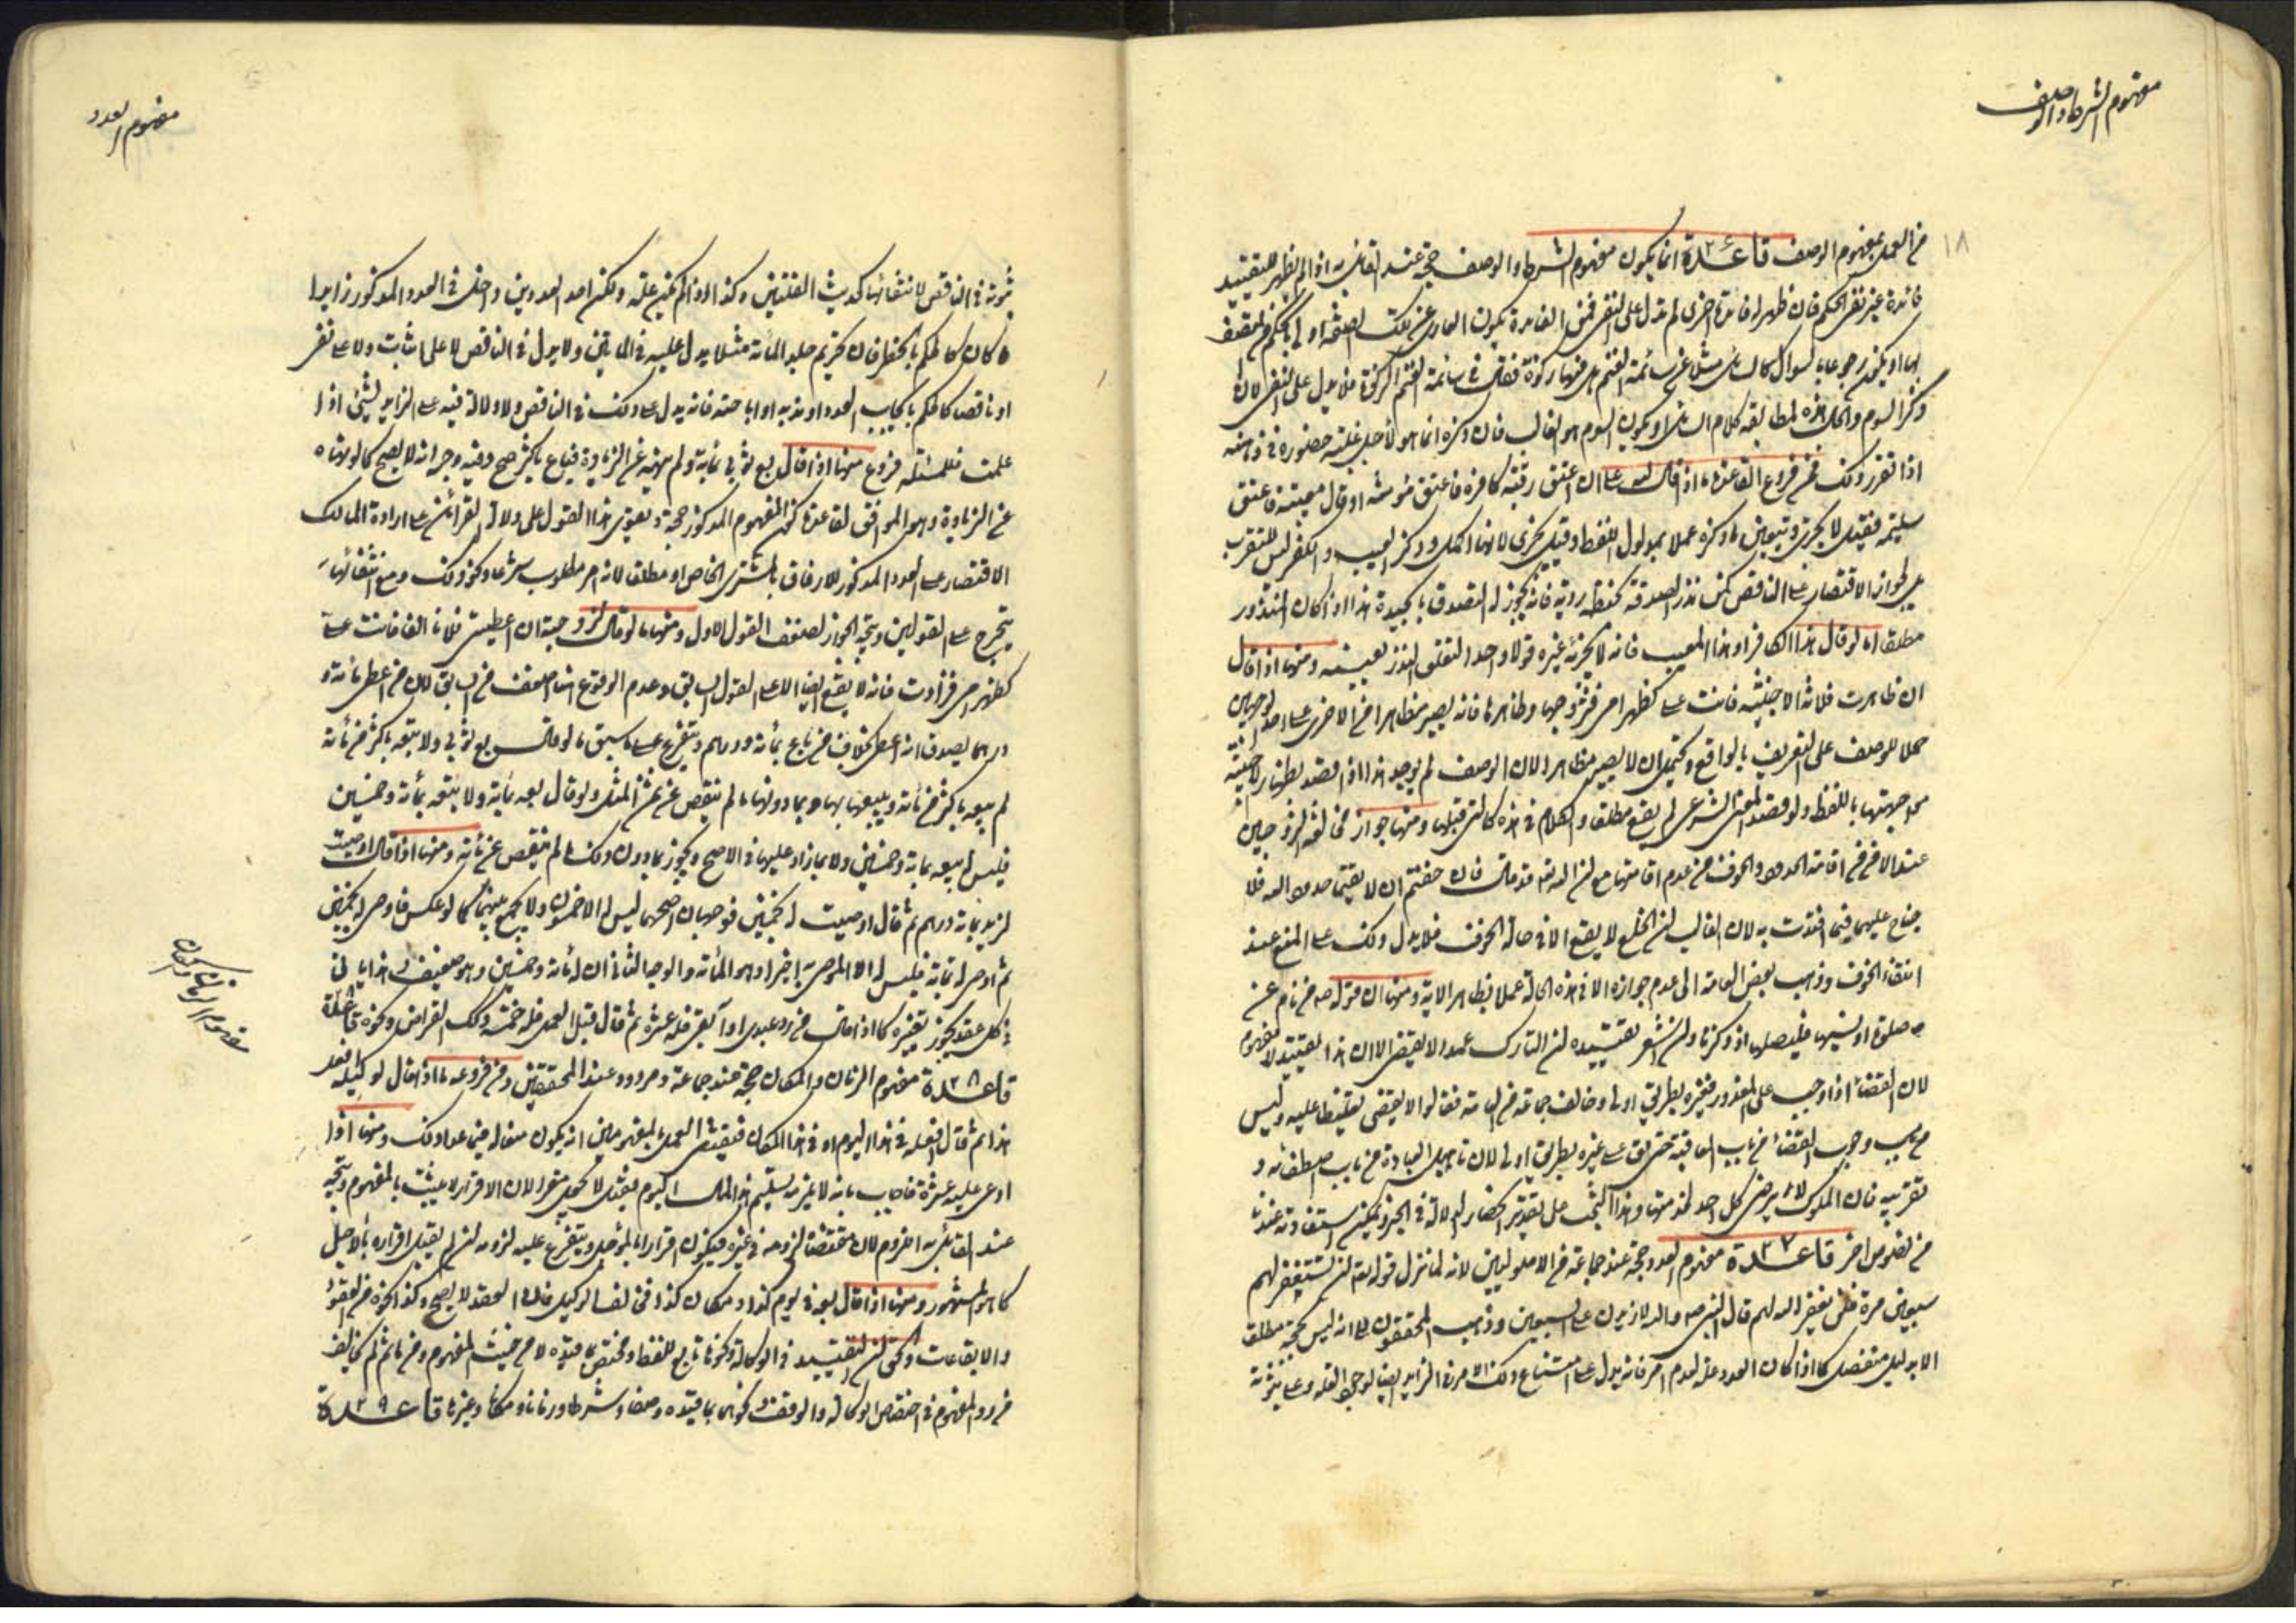 مفهوم الشرط والوصف
١٨
من العمل بمفهوم الوصف قاعدة ٢٦ انما يكون مفهوم الشرط والوصف حجة عند القائل به اذا لم يظهر للتقييد
فائدة غير نفي الحكم فان ظهر له فائدة اخرى لم يدل على النفي فمن الفائدة يكون العاري عن تلك الصفة اولى بالحكم من المتصف
بها او يكون جوابا لسؤال كمال سئل مثلا عن سائمة الغنم هل فيها زكوة فقال في سائمة الغنم الزكوة فلا يدل على النفي لان
ذكر السوم والحال هذه لمطابقة كلام السائل او يكون السوم هو الغالب فان ذكره انما هو لاجل غلبة حضوره في ذهنه
اذا تقرر ذلك فمن فروع القاعدة ما اذا قال لله علي ان اعتق رقبة كافرة فاعتق مؤمنة او قال معيبة فاعتق
سليمة فقيل لا يجزي ويتعين ما ذكره عملا بمدلول اللفظ وقيل يجزي لانها اكمل وذكر العيب والكفر ليس للتقرب
بل لجواز الاقتصار على الناقص كمن نذر الصدقة بحنطة ردية فانه يجوز له التصدق بالجيدة هذا اذا كان المنذور
مطلقا اما لو قال هذا الكافر او هذا المعيب فانه لا يجزئه غيره قولا واحدا لتعلق النذر بعينه ومنها اذا قال
ان ظاهرت فلانة الاجنبية فانت علي كظهر امي فتزوجها وظاهرها فانه يصير مظاهرا من الاخرى على احد الوجهين
حملا للوصف على التعريف بالواقع ويحتمل ان لا يصير مظاهرا لان الوصف لم يوجد هذا اذا قصد بظهار الاجنبية
مواجهتها باللفظ ولو قصد المعنى الشرعي لم يقع مطلقا والكلام في هذه كالتي قبلها ومنها جواز مخالفة الزوجين
عند الامن من اقامة الحدود والخوف من عدم اقامتها مع ان الله تعالى قد قال فان خفتم ان لا يقيما حدود الله فلا
جناح عليهما فيما افتدت به لان الغالب ان الخلع لا يقع الا في حالة الخوف فلا يدل ذلك على المنع عند
انتفاء الخوف وذهب بعض العامة الى عدم جوازه الا في هذه الحالة عملا بظاهر الاية ومنها ان قوله ص من نام عن
صلوة او نسيها فليصلها اذا ذكرها وان اشعر تقييده ان التارك عمدا لا يقضي الا ان هذا التقييد لا مفهوم
لان القضاء اذا وجب على المعذور فغيره بطريق اولى وخالف جماعة من العامة فقالوا لا يقضي تغليظا عليه وليس
من باب وجوب القضاء من باب المعاقبة حتى يقع على غيره بطريق اولى لان تأهيل العبادة من باب اصطفائه و
تقريبه فان الملوك لا يرضى كل احد لخدمتها وهذا البحث مل بتقدير انحصار الدلالة في الخبر ويمكن استفادته عندنا
من نصوص اخر قاعدة ٢٧ مفهوم العدد حجة عند جماعة من الاصوليين لانه لما نزل قوله تعالى ان تستغفر لهم
سبعين مرة فلن يغفر الله لهم قال النبي ص والله لازيدن على السبعين وذهب المحققون الى انه ليس بحجة مطلقا
الا بدليل منفصل كما اذا كان العدد علة لعدم امر فانه يدل على امتناع ذلك الامر في الزايد ايضا لوجود العلة وعلى ثبوته
مفهوم العدد
ثبوته في الناقص لانتفائها كحديث القلتين وكذا اذا لم يكن علة ولكن احد العددين داخل في العدد المذكور زايدا
ما كان كالحكم بالحظر فان تحريم جلد المائة مثلا يدل عليه في المايتين ولا يدل في الناقص لا على اثبات ولا على نفي
او ناقصا كالحكم بايجاب العدد او ندبه او اباحته فانه يدل على ذلك في الناقص ولا دلالة فيه على الزايد بشيء اذا
علمت فللمسئلة فروع منها اذا قال بع ثوبي بمائة ولم ينهه عن الزيادة فباع باكثر صح وفيه وجه انه لا يصح كما لو نهاه
عن الزيادة وهو الموافق لقاعدة كون المفهوم المذكور حجة ويقوي هذا القول على دلالة القرائن على ارادة المالك
الاقتصار على العدد المذكور للارفاق بالمشتري الخاص او مطلقا لانه امر مطلوب شرعا ونحو ذلك ومع انتفائها
يتخرج على القولين ويتجه الجواز لضعف القول الاول ومنها ما لو قال لزوجته ان اعطيتني فلانا الفا فانت علي
كظهر امي فزادت فانه لا يقع ايضا الا على القول السابق وعدم الوقوع هنا اضعف من السابق لان من اعطى مائة و
درهما يصدق انه اعطى بخلاف من باع بمائة ودرهم ويتفرع على ما سبق ما لو قال بع ثوبي ولا تبعه باكثر من مائة
لم يبعه باكثر من مائة ويبيعها بها وبما دونها ما لم ينقص عن ثمن المثل ولو قال بعه بمائة ولا تبعه بمائة وخمسين
فليس له بيعه بمائة وخمسين ولا بما زاد عليها في الاصح ويجوز بما دون ذلك ما لم ينقص عن مائة ومنها اذا قال اوصيت
لزيد بمائة درهم ثم قال اوصيت له بخمسين فوجهان اصحهما ليس له الا خمسون ولا يجمع بينهما كما لو عكس فاوصى له بخمسين
ثم اوصى له بمائة فليس له الا الموصى به اخيرا وهو المائة والوجه الثاني ان له مائة وخمسين وهو ضعيف وهذا ياتي
في كل عقد يجوز تغييره كما اذا قال من رد عبدي او آبقي فله عشرة ثم قال قبل العمل فله خمسة وكذلك القراض ونحوه
قاعدة ٢٨ مفهوم الزمان والمكان حجة عند جماعة ومردود عند المحققين ومن فروعه ما اذا قال لوكيله افعل
هذا ثم قال افعله في هذا اليوم او في هذا المكان فيقتضي العمل بالمفهومين انه يكون منعا له فيما عدا ذلك ومنها اذا
ادعى عليه عشرة فاجاب بانه لا يلزمه تسليم هذا المال اليوم فقيل لا يجعل مقرا لان الاقرار لا يثبت بالمفهوم ويتجه
عند القائل به اللزوم لان مقتضاه لزومه في غيره فيكون اقرارا بالمؤجل ويتفرع عليه لزومه ان لم يقبل اقراره بالاجل
كما هو المشهور ومنها اذا قال بعه في يوم كذا او مكان كذا فخالف الوكيل فان العقد لا يصح وكذا نحوه من العقود
والايقاعات والحق ان التقييد في الوكالة ونحوها تابع للفظ ومختص بما قيده لا من حيث المفهوم ومن ثم لم يخالف
من رد المفهوم في اختصاص الوكالة والوقف ونحوهما بما قيده وصفا وشرطا وزمانا ومكانا وغيرها قاعدة ٢٩
مفهوم الزمان والمكان